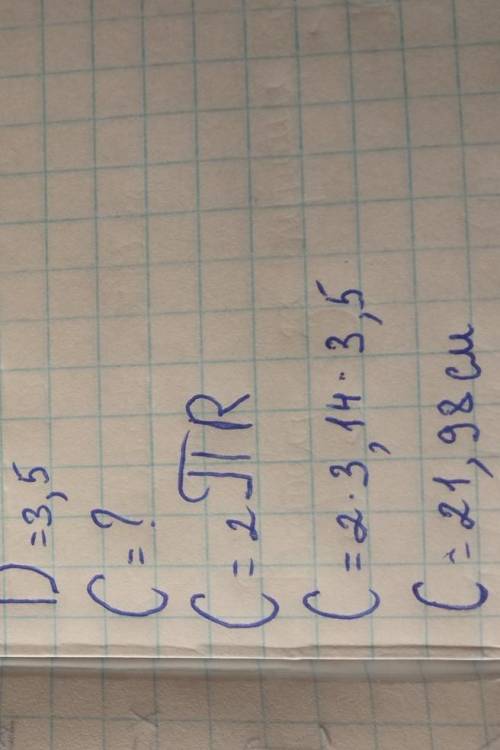 D = 3,5
C = ?
C = 2πR
C = 2·3,14·3,5
C = 21,98 см